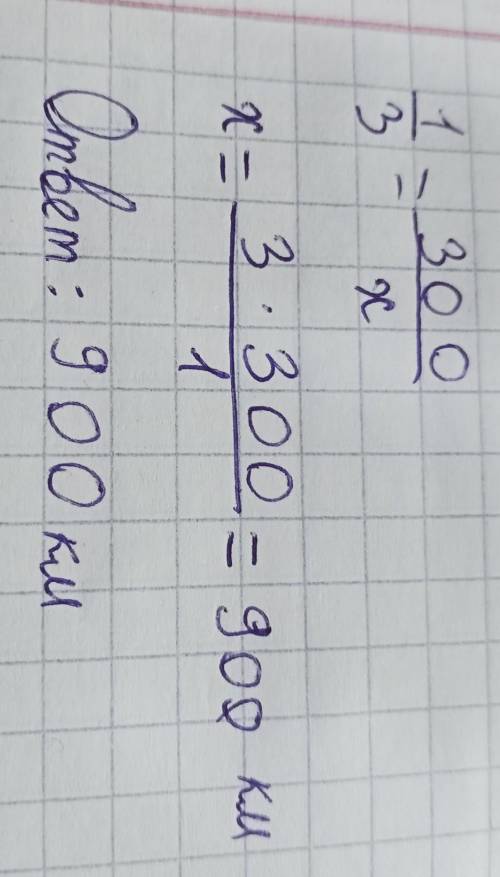 1/3 = 300/x
x = 3 · 300/1 = 900 км
Ответ: 900 км